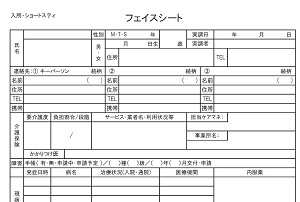 入所・ショートステイ
フェイスシート
氏名 性別 M・T・S 年 実調日 年 月 日
男・女 月 日生 歳 実調者
住所 TEL
連絡先:① キーパーソン 続柄 ② 続柄 ③ 続柄
名前 ( ) 名前 ( ) 名前 ( )
住所 住所 住所
TEL TEL TEL
携帯 携帯 携帯
介護保険 要介護度 負担割合/段階 サービス・業者名・利用状況等 担当ケアマネ:
/ 事業所名:
かかりつけ医
障害 手帳( 有・無・申請中・申請予定 )/( )種( )級/( )年( )月交付・申請
発症日時 病名 治療状況(入院・通院) 医療機関 内服薬
現病